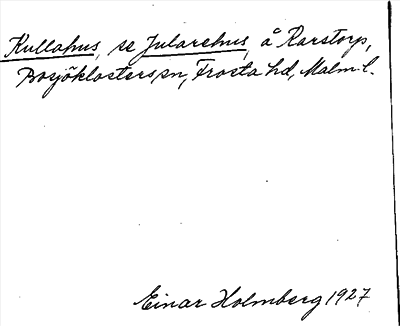 Kullahus, se Jularehus, å Rarstorp,
Bosjöklosters sn, Frosta hd, Malm. l.
Einar Holmberg 1927